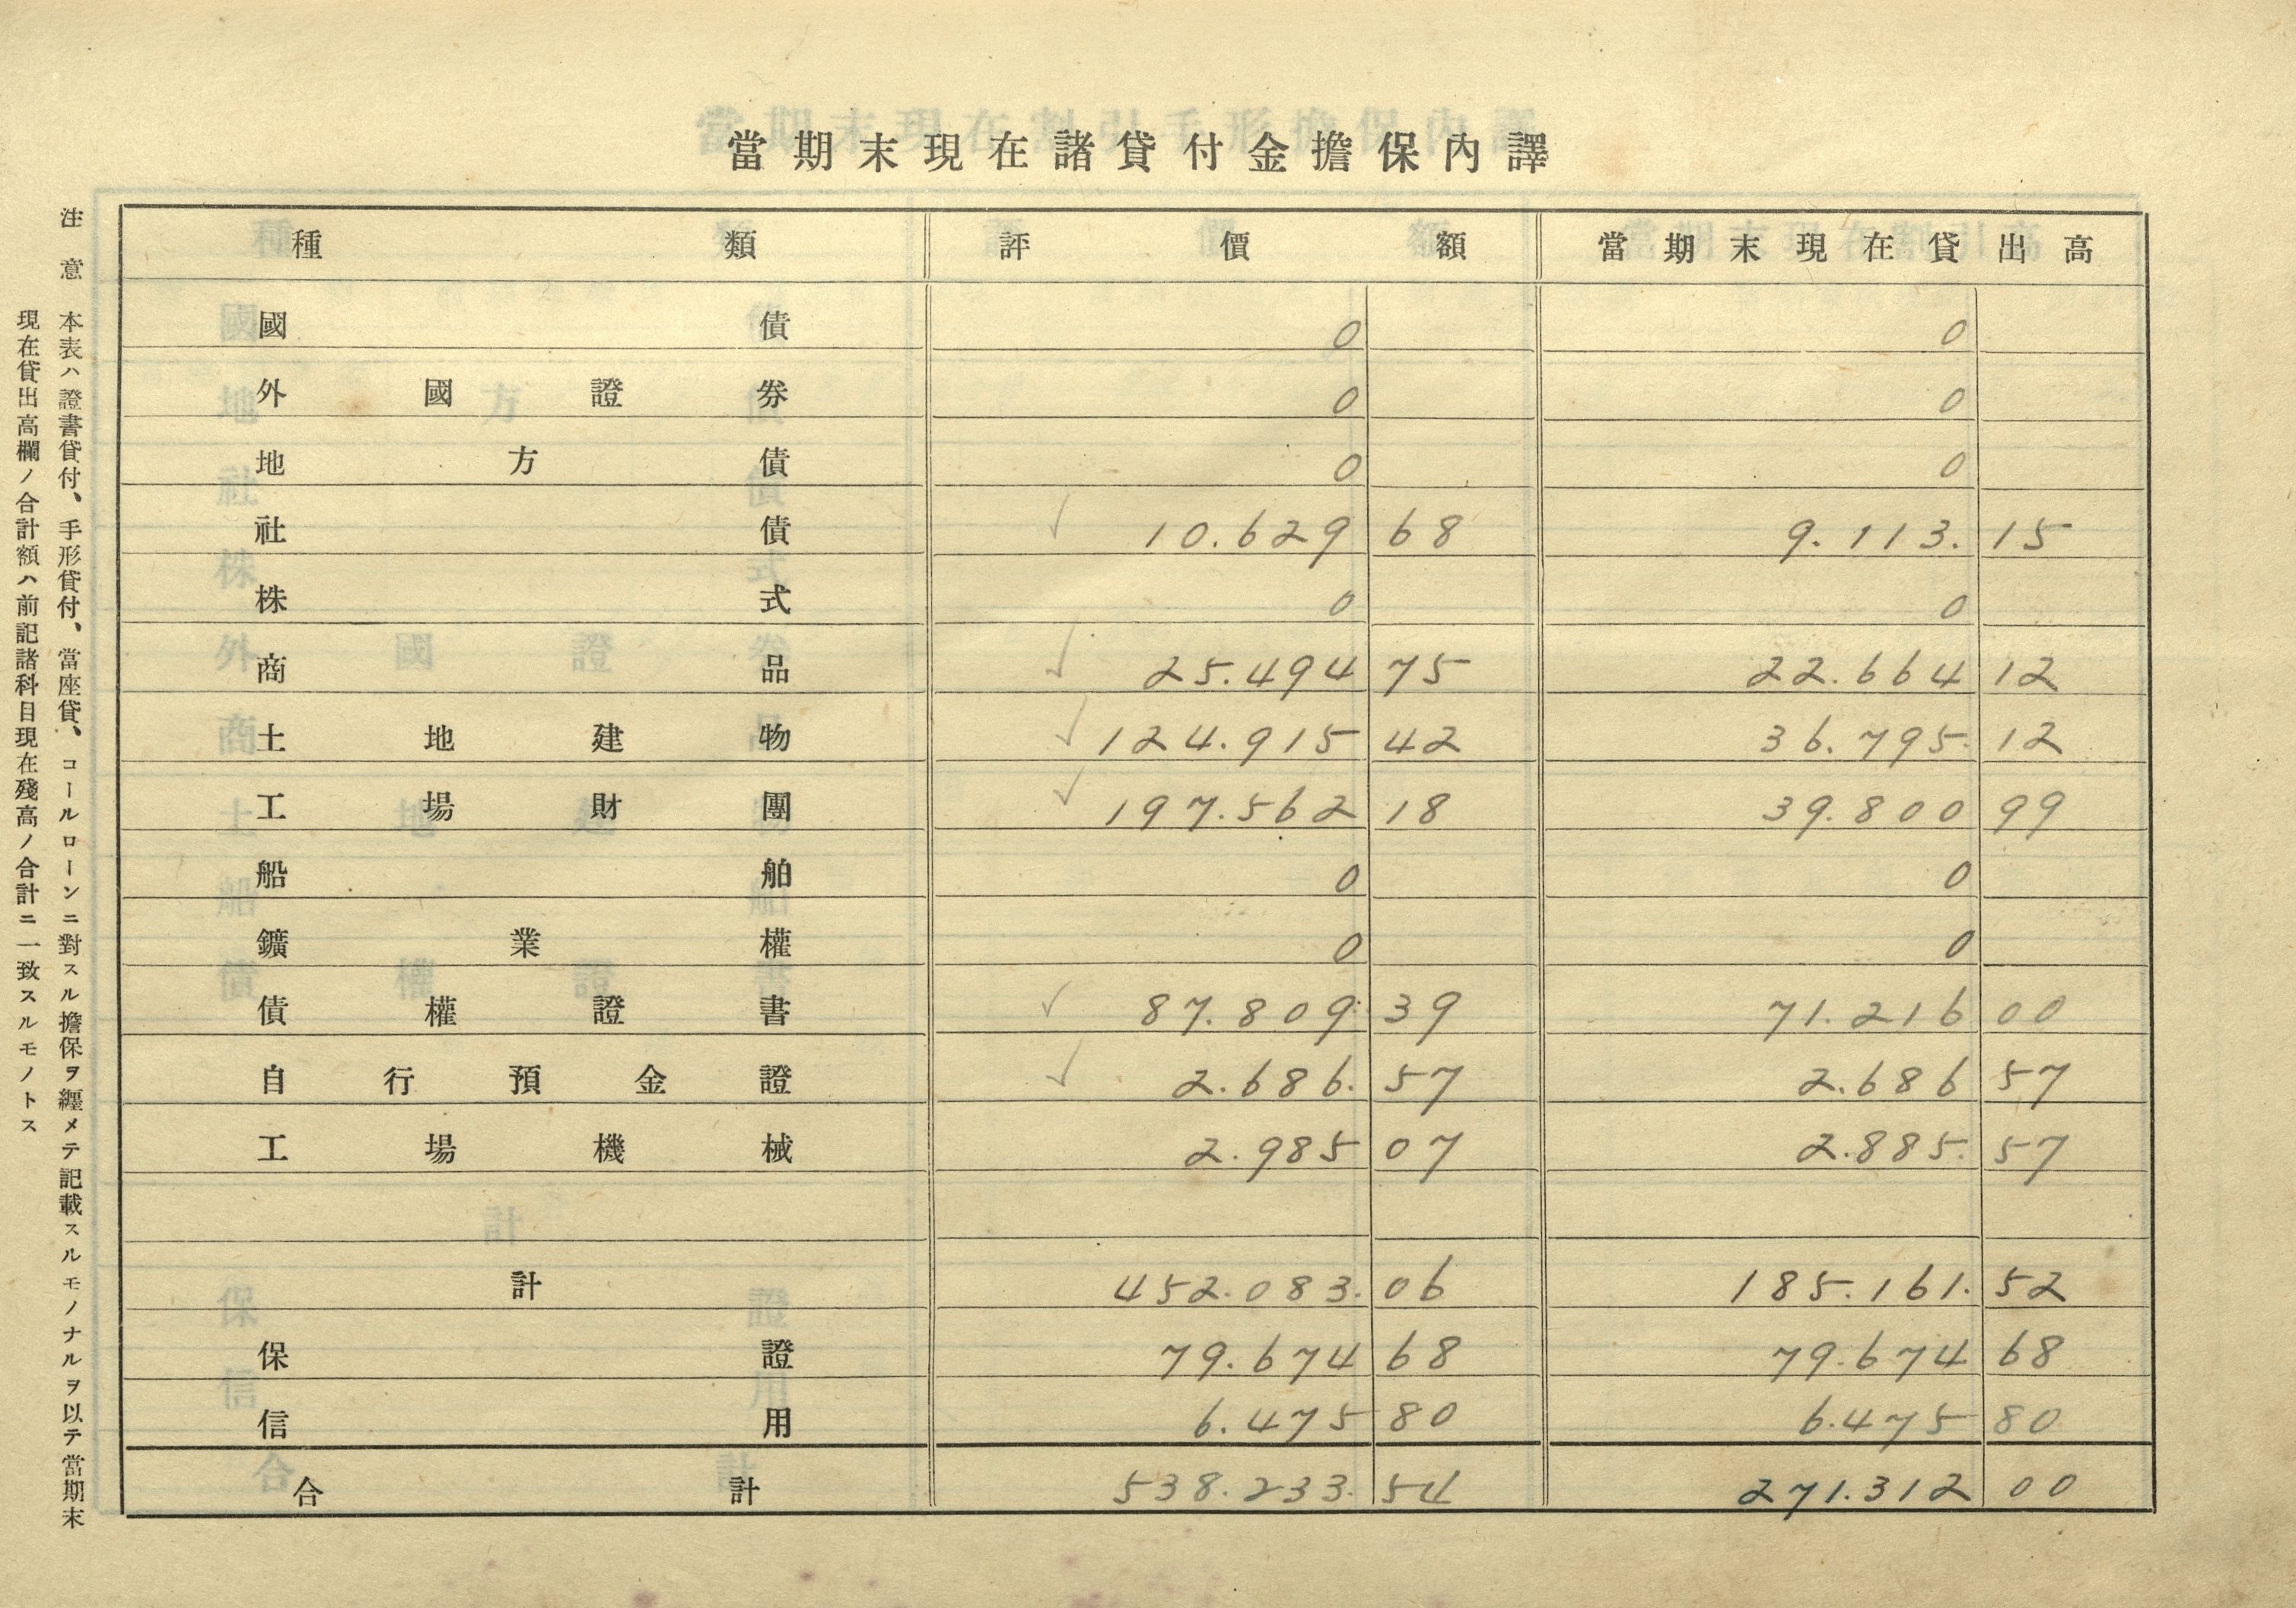 當期末現在諸貸付金擔保內譯
種類 評價額 當期末現在貸出高
國債 0 0
外國證券 0 0
地方債 0 0
社債 ✓ 10.629 68 9.113. 15
株式 0 0
商品 ✓ 25.494 75 22.664 12
土地建物 ✓ 124.915 42 36.795. 12
工場財團 ✓ 197.562 18 39.800 99
船舶 0 0
鑛業權 0 0
債權證書 ✓ 87.809. 39 71.216 00
自行預金證 ✓ 2.686. 57 2.686 57
工場機械 2.985 07 2.885. 57
計 452.083. 06 185.161. 52
保證 79.674 68 79.674 68
信用 6.475 80 6.475 80
合計 538.233. 54 271.312 00
注意 本表ハ證書貸付、手形貸付、當座貸、コールローンニ對スル擔保ヲ纒メテ記載スルモノナルヲ以テ當期末
現在貸出高欄ノ合計額ハ前記諸科目現在殘高ノ合計ニ一致スルモノトス